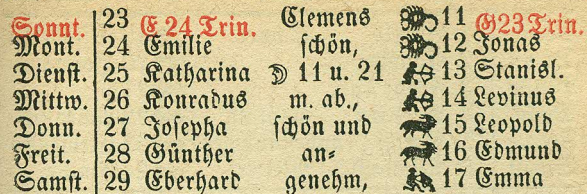 Sonnt. 23 E 24 Trin. Clemens 11 G23 Trin.
Mont. 24 Emilie schön, 12 Jonas
Dienst. 25 Katharina ☽ 11 u. 21 13 Stanisl.
Mittw. 26 Konradus m. ab., 14 Levinus
Donn. 27 Josepha schön und 15 Leopold
Freit. 28 Günther an- 16 Edmund
Samst. 29 Eberhard genehm, 17 Emma